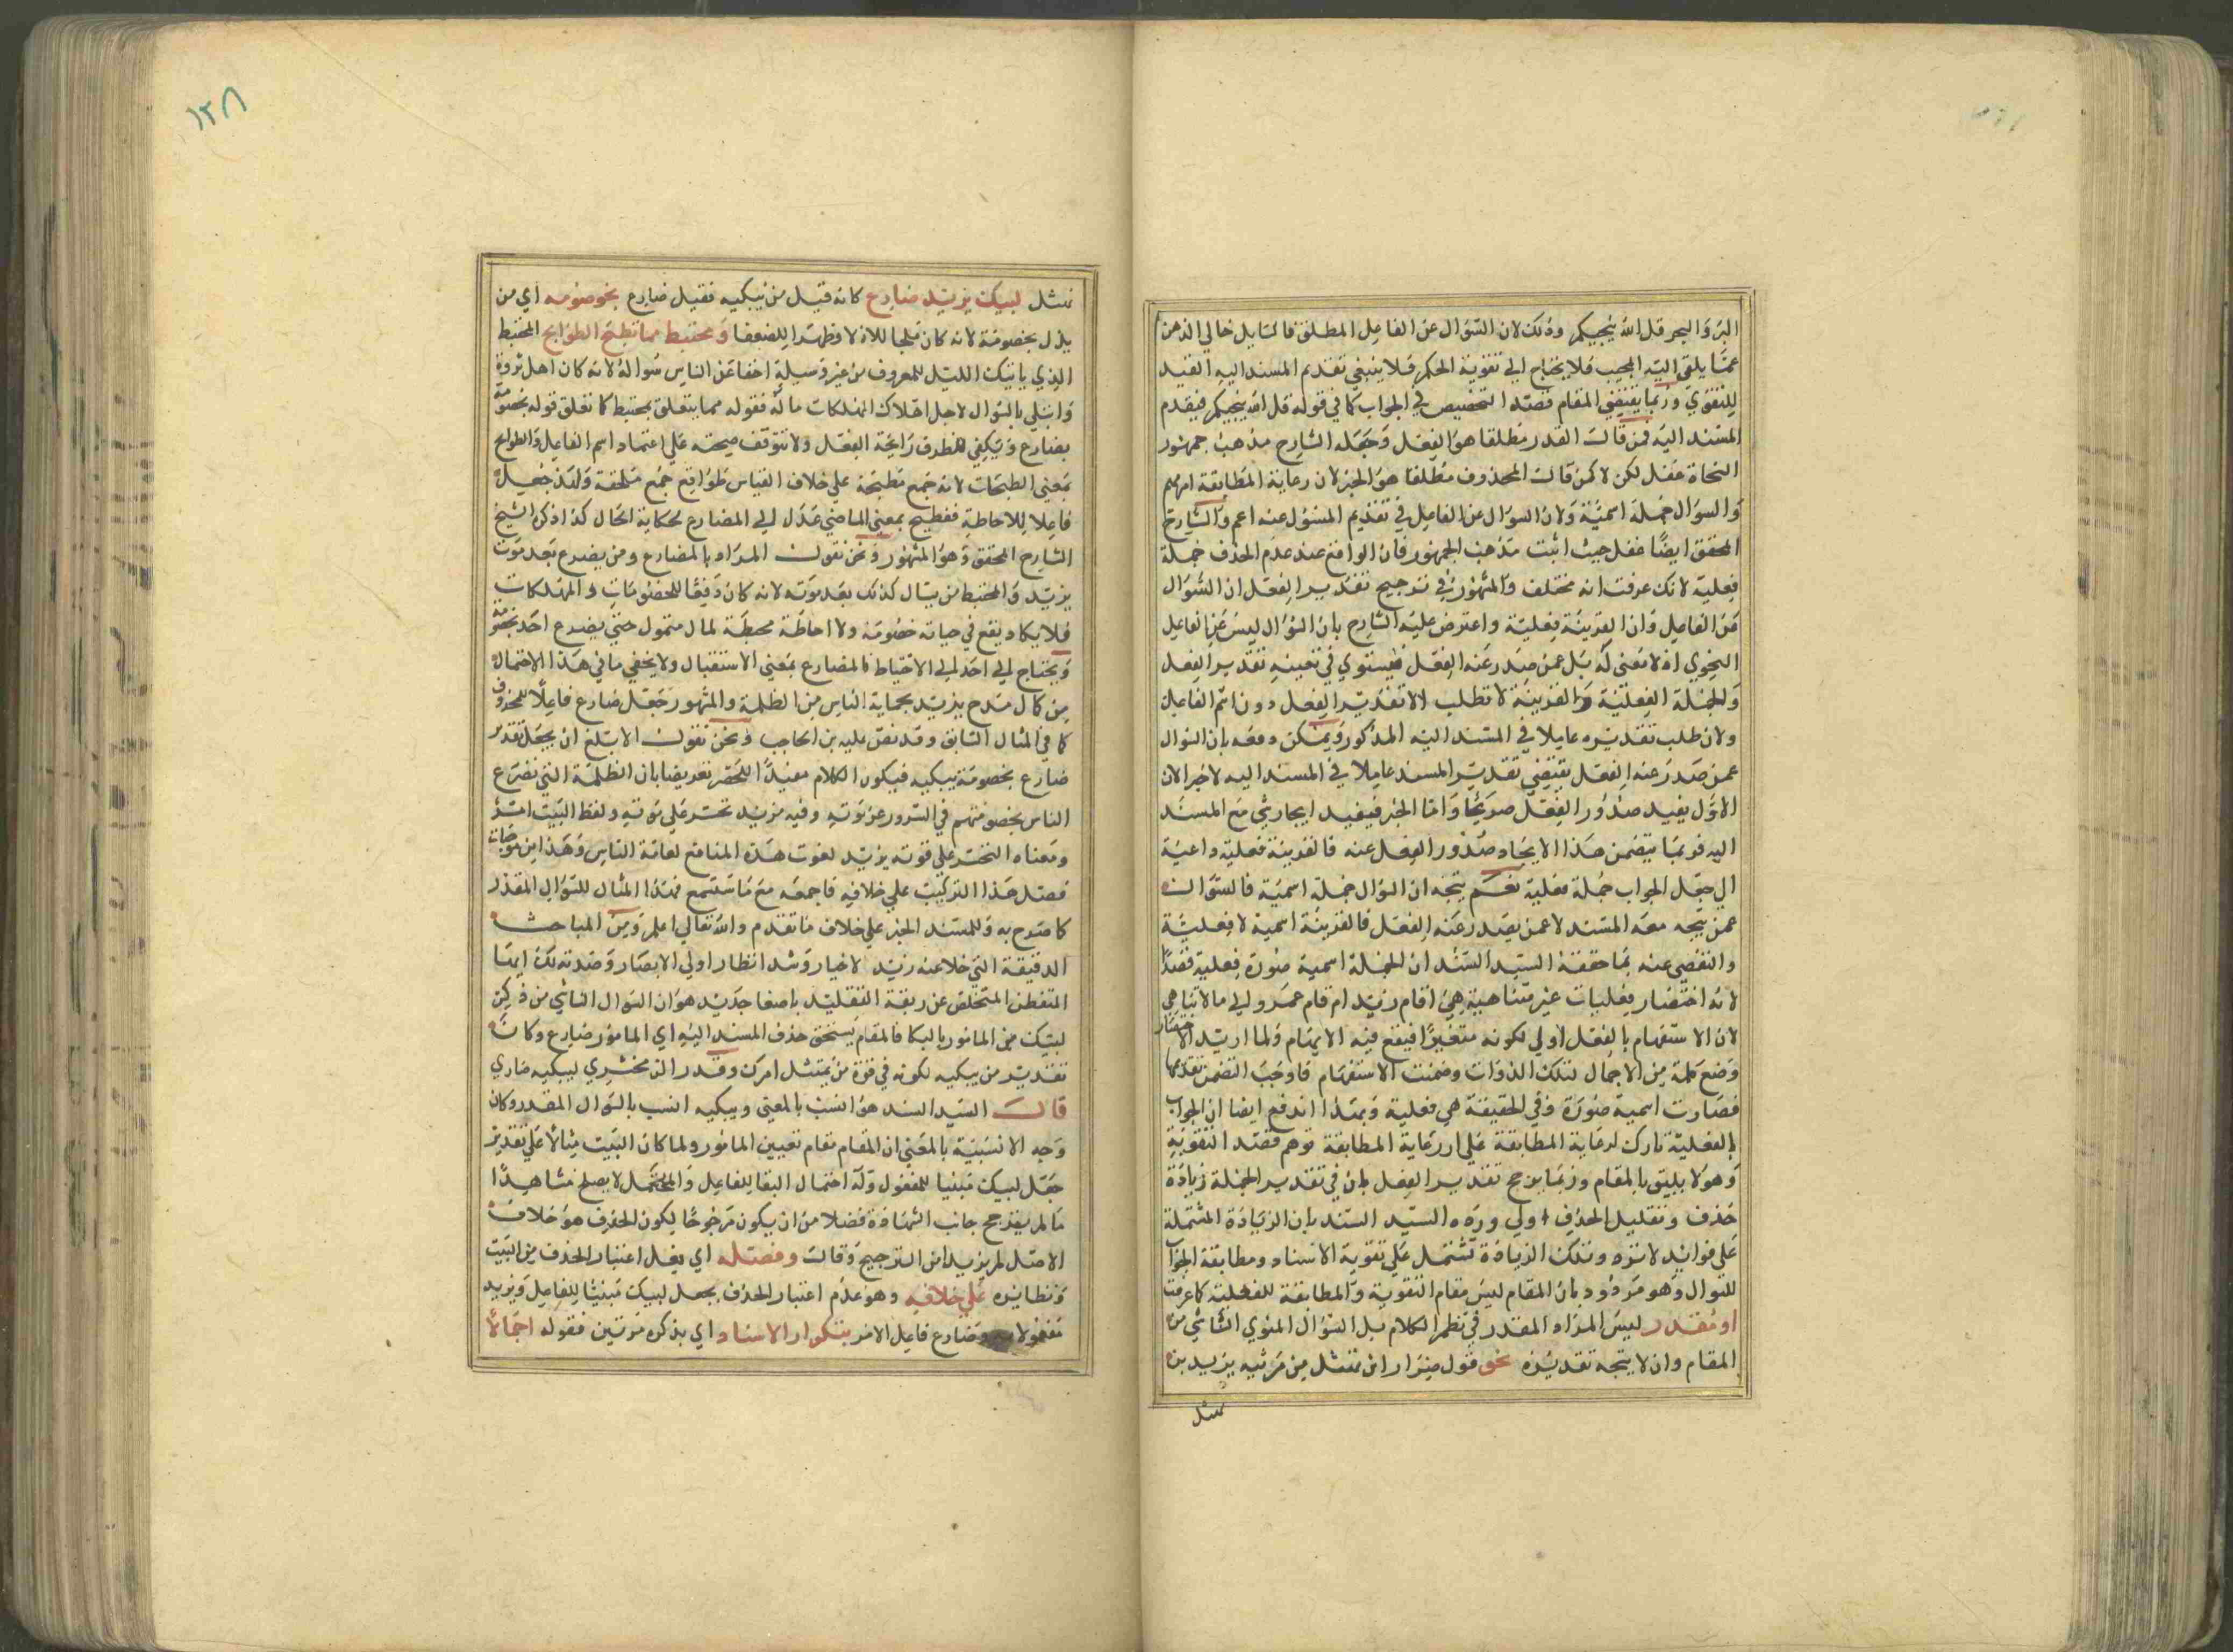 البر والبحر قل الله ينجيكم وذلك لان السؤال عن الفاعل المطلق فالسايل خالي الذهن
عما يلقى اليه المجيب فلا يحتاج الي تقوية الحكم فلا ينبغي تقديم المسند اليه المفيد
للتقوي وربما يقتضي المقام قصد التخصيص في الجواب كما في قوله قل الله ينجيكم فيقدم
المسند اليه فمن قال القدر مطلقا هو الفعل وجعله الشارح مذهب جمهور
النحاة غفل لكن لا كمن قال المحذوف مطلقا هو الخبر لان رعاية المطابقة اهم
والسؤال جملة اسمية ولان السؤال عن الفاعل في تقديم المسؤل عنه اعم والشارح
المحقق ايضا غفل حيث اثبت مذهب الجمهور فان الواقع عند عدم الحذف جملة
فعلية لانك عرفت انه مختلف والمشهور في ترجيح تقدير الفعل ان السؤال
عن الفاعل وان القرينة فعلية واعترض عليه الشارح بان السؤال ليس عن الفاعل
النحوي اذ لا معنى له بل عمن صدر عنه الفعل فيستوي في تعيينه تقدير الفعل
والجملة الفعلية والقرينة لا تطلب الا تقدير الفعل دون اسم الفاعل
ولان طلب تقديره عاملا في المسند اليه المذكور ويمكن دفعه بان السوال
عمن صدر عنه الفعل يقتضي تقدير المسند عاملا في المسند اليه لا خبرا لان
الاول يفيد صدور الفعل صريحا واما الخبر فيفيد ايجاد شي مع المسند
اليه فربما يتضمن هذا الايجاد صدور الفعل عنه فالقرينة فعلية داعية
الي جعل الجواب جملة فعلية نعم يتجه ان السؤال جملة اسمية فالسؤال
عمن يتجه معه المسند لا عمن يصدر عنه الفعل فالقرينة اسمية لا فعلية
والتفصي عنه بما حققه السيد السند ان الجملة اسمية صورة فعلية قصدا
لانه اختصار فعليات غير متناهية هي اقام زيد ام قام عمرو الي ما لا يتناهي
لان الاستفهام بالفعل اولي لكونه متغيرا فيقع فيه الابهام ولما اريد الاختصار
وضع كلمة من لاجمال لتلك الذوات وضمنت الاستفهام فاوجب التضمن تقدمها
فصارت اسمية صورة وفي الحقيقة هي فعلية وبهذا اندفع ايضا ان الجواب
بالفعلية تارك لرعاية المطابقة علي ان رعاية المطابقة توهم قصد التقوية
وهو لا يليق بالمقام وربما يرجح تقدير الفعل بان في تقدير الجملة زيادة
حذف وتقليل الحذف اولي ورده السيد السند بان الزيادة المشتملة
علي فوائد لا ترد وتلك الزيادة تشتمل علي تقوية الاسناد ومطابقة الجواب
للسؤال وهو مردود بان المقام ليس مقام التقوية والمطابقة للفعلية كما عرفت
او مقدر ليس المراد المقدر في نظم الكلام بل السؤال المنوي الناشي من
المقام وان لا يتجه تقديره نحو قول ضرار ابن نهشل من مرثيه يزيد بن
نهشل
نهشل لبيك يزيد ضارع كانه قيل من يبكيه فقيل ضارع بخصومه اي من
يذل بخصومة لانه كان ملجا للاذلا وظهيرا للضعفا ومختبط مما تطيح الطوايح المختبط
الذي ياتيك الليل للمعروف من غير وسيلة اخفا عن الناس سؤاله لانه كان اهل ثروة
وابتلي بالسؤال لاجل اهلاك المهلكات ماله فقوله مما يتعلق بمختبط كما تعلق قوله بخصومة
بضارع ويكفي للظرف رايحة الفعل ولا تتوقف صحته علي اعتماد اسم الفاعل والطوايح
بمعني المطيحات لانه جمع مطيحة علي خلاف القياس كلواقح جمع ملقحة ولقد جعل
فاعلا للاحاطة فتطيح بمعني الماضي عدل الي المضارع لحكاية الحال كذا ذكره الشيخ
الشارح المحقق وهو المشهور ونحن نقول المراد بالمضارع ومن يضرع بعد موت
يزيد والمختبط من يسال كذلك بعد موته لانه كان دفيقا للخصومات والمهلكات
فلا يكاد يقع في حياته خصومة ولا احاطة محيطة لمال متمول حتي يضرع احد بخصومة
ويحتاج الي احد الي الاختباط فالمضارع بمعني الاستقبال ولا يخفي ما في هذا الاحتمال
من كمال مدح يزيد بحماية الناس من الظلمة والمشهور جعل ضارع فاعلا لمحذوف
كما في المثال السابق وقد نص عليه بن الحاجب ونحن نقول الابلغ ان يجعل تقدير
ضارع بخصومة يبكيه فيكون الكلام مفيدا للحصر تعريضا بان الظلمة التي تضرع
الناس بخصومتهم في السرور عن موته وفيه مزيد تحسر علي موته ولفظ البيت امر
ومعناه التحسر علي فوته يزيد لفوت هذه المنافع لعامة الناس وهذا من موجبات
فضل هذا التركيب علي خلافه فاجمعه مع ما ستسمع فهذا المثال للسؤال المقدر
كما صرح به وللمسند الخبر علي خلاف ما تقدم والله تعالي اعلم ومن المباحث
الدقيقة التي خلا عنه زيد الاخيار وشد انظار اولي الابصار وصدته لك ايها
المتفطن المتخلص عن ربقة التقليد باصغا جديد هو ان السؤال الناشي من ذكر
لبيك من المامور بالبكا فالمقام يستحق حذف المسند اليه اي المامور ضارع وكان
تقدير من يبكيه لكونه في قوة من يمتثل امرك وقدر الزمخشري ليبكيه ضاري
قال السيد السند هو انسب بالمعني ويبكيه انسب بالسؤال المقدر وكان
وجه الانسبية بالمعني ان المقام مقام تعيين المامور ولما كان البيت مثالا علي تقدير
جعل لبيك مبنيا للمفعول وله احتمال البنا للفاعل والمحتمل لا يصلح شاهدا
ما لم يترجح جانب الشهادة فضلا من ان يكون مرجوحا لكون الحذف هو خلاف
الاصل لم يزيد امن الترجيح وقال وفضله اي فضل اعتبار الحذف من البيت
ونظايره علي خلافه وهو عدم اعتبار الحذف بجعل لبيك مبنيا للفاعل ويزيد
مفعولا وضارع فاعل الامر بتكرار الاسناد اي بذكره مرتين فقوله اجمالا
١٢٨